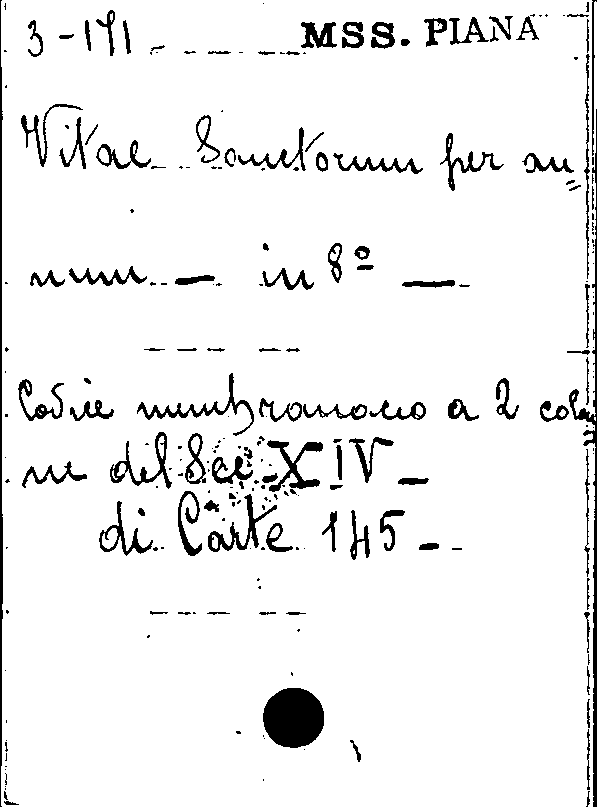 3-171 MSS. PIANA
Vitae Sanctorum per an=
num — in 8º —
Codice membranaceo a 2 colon
ne del Sec XIV —
di Carte 145 -